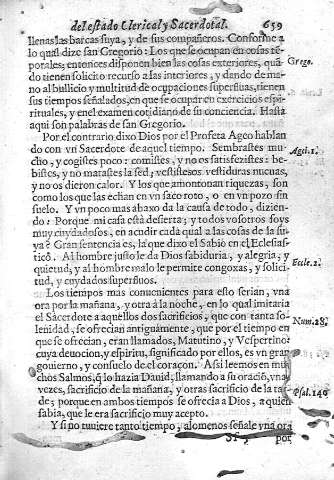 del estado Clerical y Sacerdotal. 659
llenas las barcas suya, y de sus compañeros. Conforme a
lo qual dize san Gregorio: Los que se ocupan en cosas tē-
porales; entonces disponen bien las cosas exteriores, quā-
do tienen solicito recurso a las interiores, y dando de ma-
no al bullicio y multitud de ocupaciones superfluas, tienen
sus tiempos señalados, en que se ocupan en exercicios espi-
rituales, y en el examen cotidiano de su conciencia. Hasta
aqui son palabras de san Gregorio.
Grego.
Por el contrario dixo Dios por el Profeta Ageo hablan
do con vn Sacerdote de aquel tiempo. Sembrastes mu-
cho, y cogistes poco: comistes, y no es satisfezistes: be-
bistes, y no matastes la sed; vestistesos vestiduras nueuas,
y no os dieron calor. Y los que amontonan riquezas, son
como los que las echan en vn saco roto, o en vn pozo sin
suelo. Y vn poco mas abaxo da la causa de todo, dizien-
do: Porque mi casa está desierta; y todos vosotros soys
muy cuydadosos, en acudir cada qual a las cosas de la su-
ya? Gran sentencia es, la que dixo el Sabio en el Eclesias-
tico. Al hombre justo le da Dios sabiduria, y alegria, y
quietud, y al hombre malo le permite congoxas, y solici-
tud, y cuydados superfluos.
Agei.1.
Eccle.2.
Los tiempos mas conuenientes para esto serian, vna
ora por la mañana, y otra à la noche, en lo qual imitaria
el Sacerdote a aquellos dos sacrificios, que con tanta so-
lenidad, se ofrecian antiguamente, que por el tiempo en
que se ofrecian, eran llamados, Matutino, y Vespertino:
cuya deuocion, y espiritu, significado por ellos, es vn gran
gouierno, y consuelo de el coraçon. Assi leemos en mu
chos Salmos, q̃ lo hazia Dauid; llamando a su oraciō, vna
vezes, sacrificio de la mañana, y otras sacrificio de la tar-
de; porque en ambos tiempos se ofrecia a Dios, a quien
sabia, que le era sacrificio muy acepto.
Num.28.
Psal.140
Y si no tuuiere tanto tiempo, alomenos señale vna ora
por